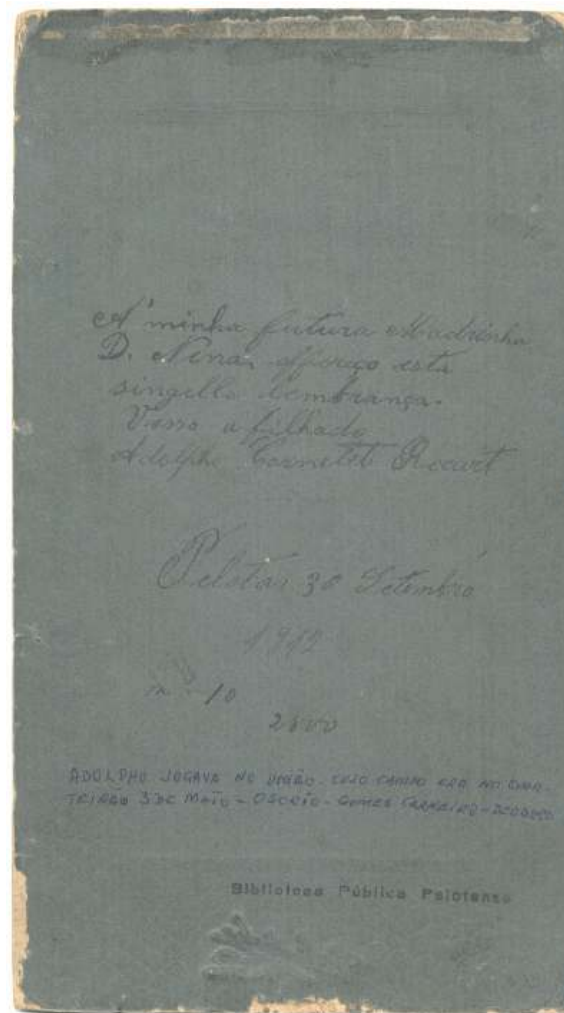 A' minha futura Madrinha
D. Nina, offereço esta
singella lembrança.
Vosso afilhado
Adolpho Cornetet Recart
Pelotas 30 Setembro
1912
n - 10
ADOLPHO JOGAVA NO UNIÃO. CUJO CAMPO ERA NO QUAR-
TEIRÃO 3 DE MAIO - OSORIO - GOMES CARNEIRO - DEODORO
Biblioteca Pública Pelotense